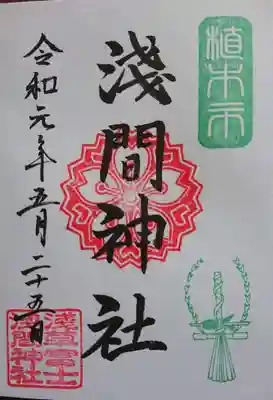 植木市
淺間神社
令和元年五月二十五日
淺草富士
淺間神社